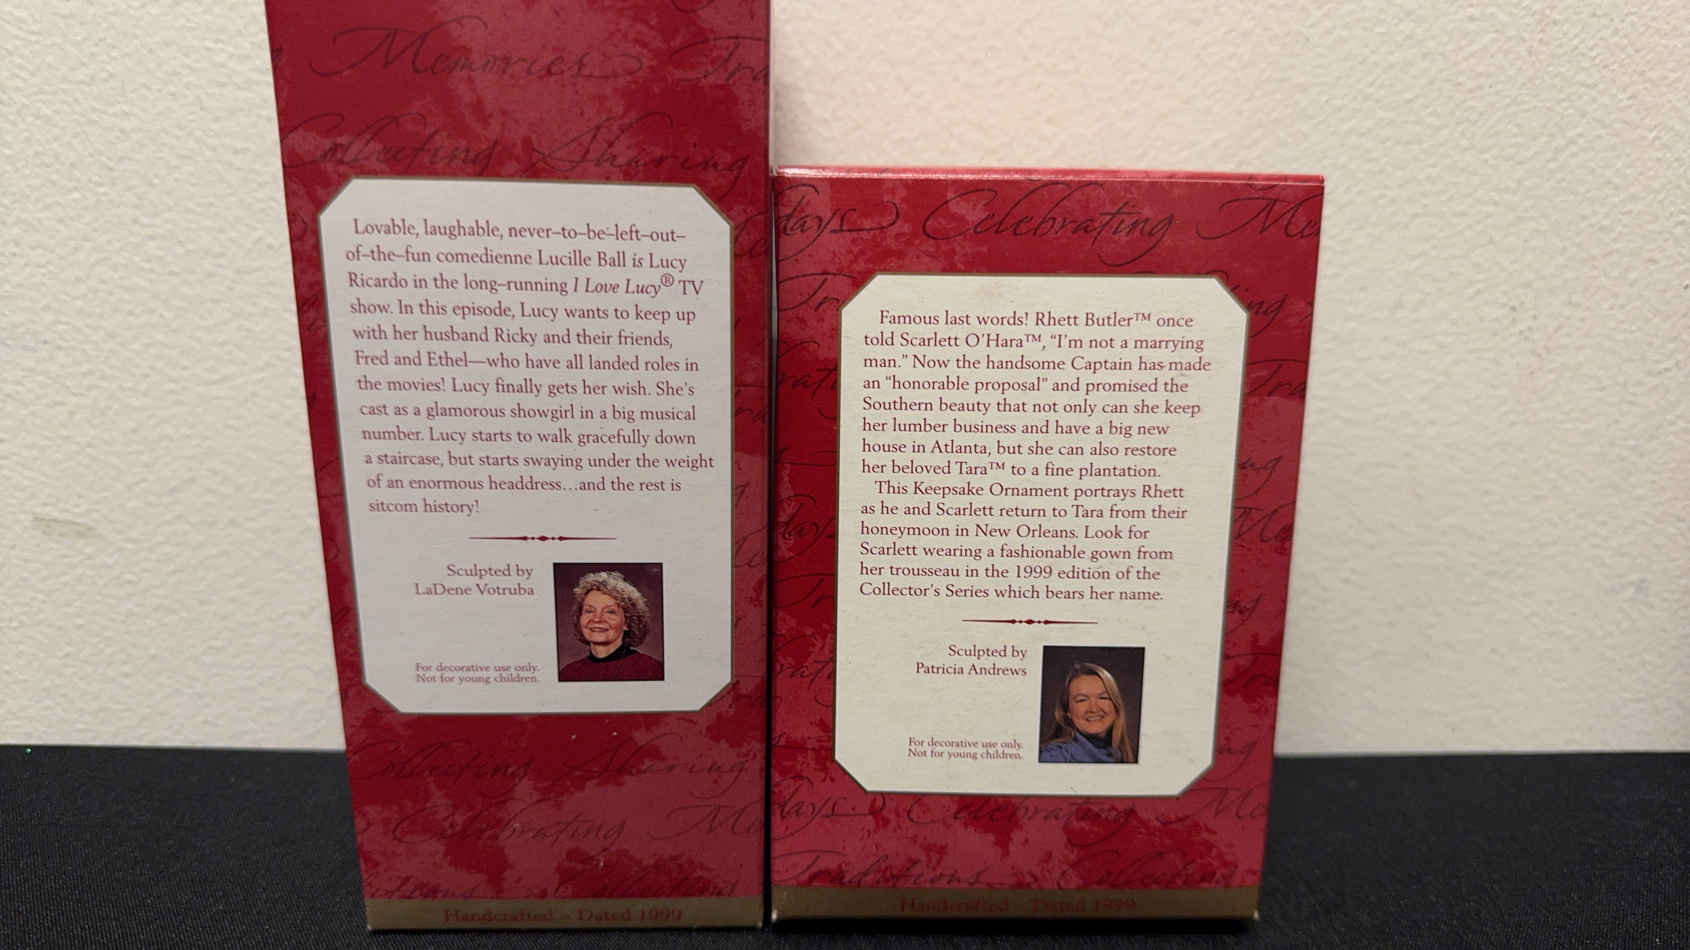 Memories Tra
Collecting Sharing
Lovable, laughable, never–to–be–left–out–
of–the–fun comedienne Lucille Ball is Lucy
Ricardo in the long–running I Love Lucy® TV
show. In this episode, Lucy wants to keep up
with her husband Ricky and their friends,
Fred and Ethel—who have all landed roles in
the movies! Lucy finally gets her wish. She's
cast as a glamorous showgirl in a big musical
number. Lucy starts to walk gracefully down
a staircase, but starts swaying under the weight
of an enormous headdress...and the rest is
sitcom history!
Sculpted by
LaDene Votruba
For decorative use only.
Not for young children.
Collecting Sharing
Celebrating Me
Collecting
Handcrafted – Dated 1999
days Celebrating Me
Famous last words! Rhett Butler™ once
told Scarlett O'Hara™, "I'm not a marrying
man." Now the handsome Captain has made
an "honorable proposal" and promised the
Southern beauty that not only can she keep
her lumber business and have a big new
house in Atlanta, but she can also restore
her beloved Tara™ to a fine plantation.
This Keepsake Ornament portrays Rhett
as he and Scarlett return to Tara from their
honeymoon in New Orleans. Look for
Scarlett wearing a fashionable gown from
her trousseau in the 1999 edition of the
Collector's Series which bears her name.
Sculpted by
Patricia Andrews
For decorative use only.
Not for young children.
days Celebrating Me
Traditions Collecting
Handcrafted – Dated 1999